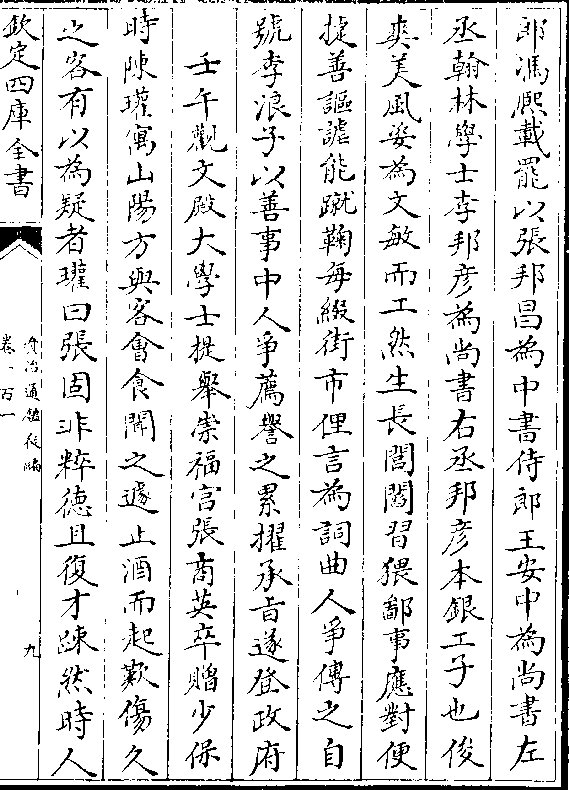 郎馮熙載罷以張邦昌為中書侍郎王安中為尚書左
丞翰林學士李邦彥為尚書右丞邦彥本銀工子也俊
爽美風姿為文敏而工然生長閭閻習猥鄙事應對便
捷善謳謔能蹴鞠每綴街市俚言為詞曲人爭傳之自
號李浪子以善事中人爭薦譽之累擢承旨遂登政府
壬午觀文殿大學士提舉崇福宮張商英卒贈少保
時陳瓘寓山陽方與客會食聞之遽止酒而起歎傷久
之客有以為疑者瓘曰張固非粹德且復才踈然時人
欽定四庫全書
資治通鑑後編
卷一百一
九